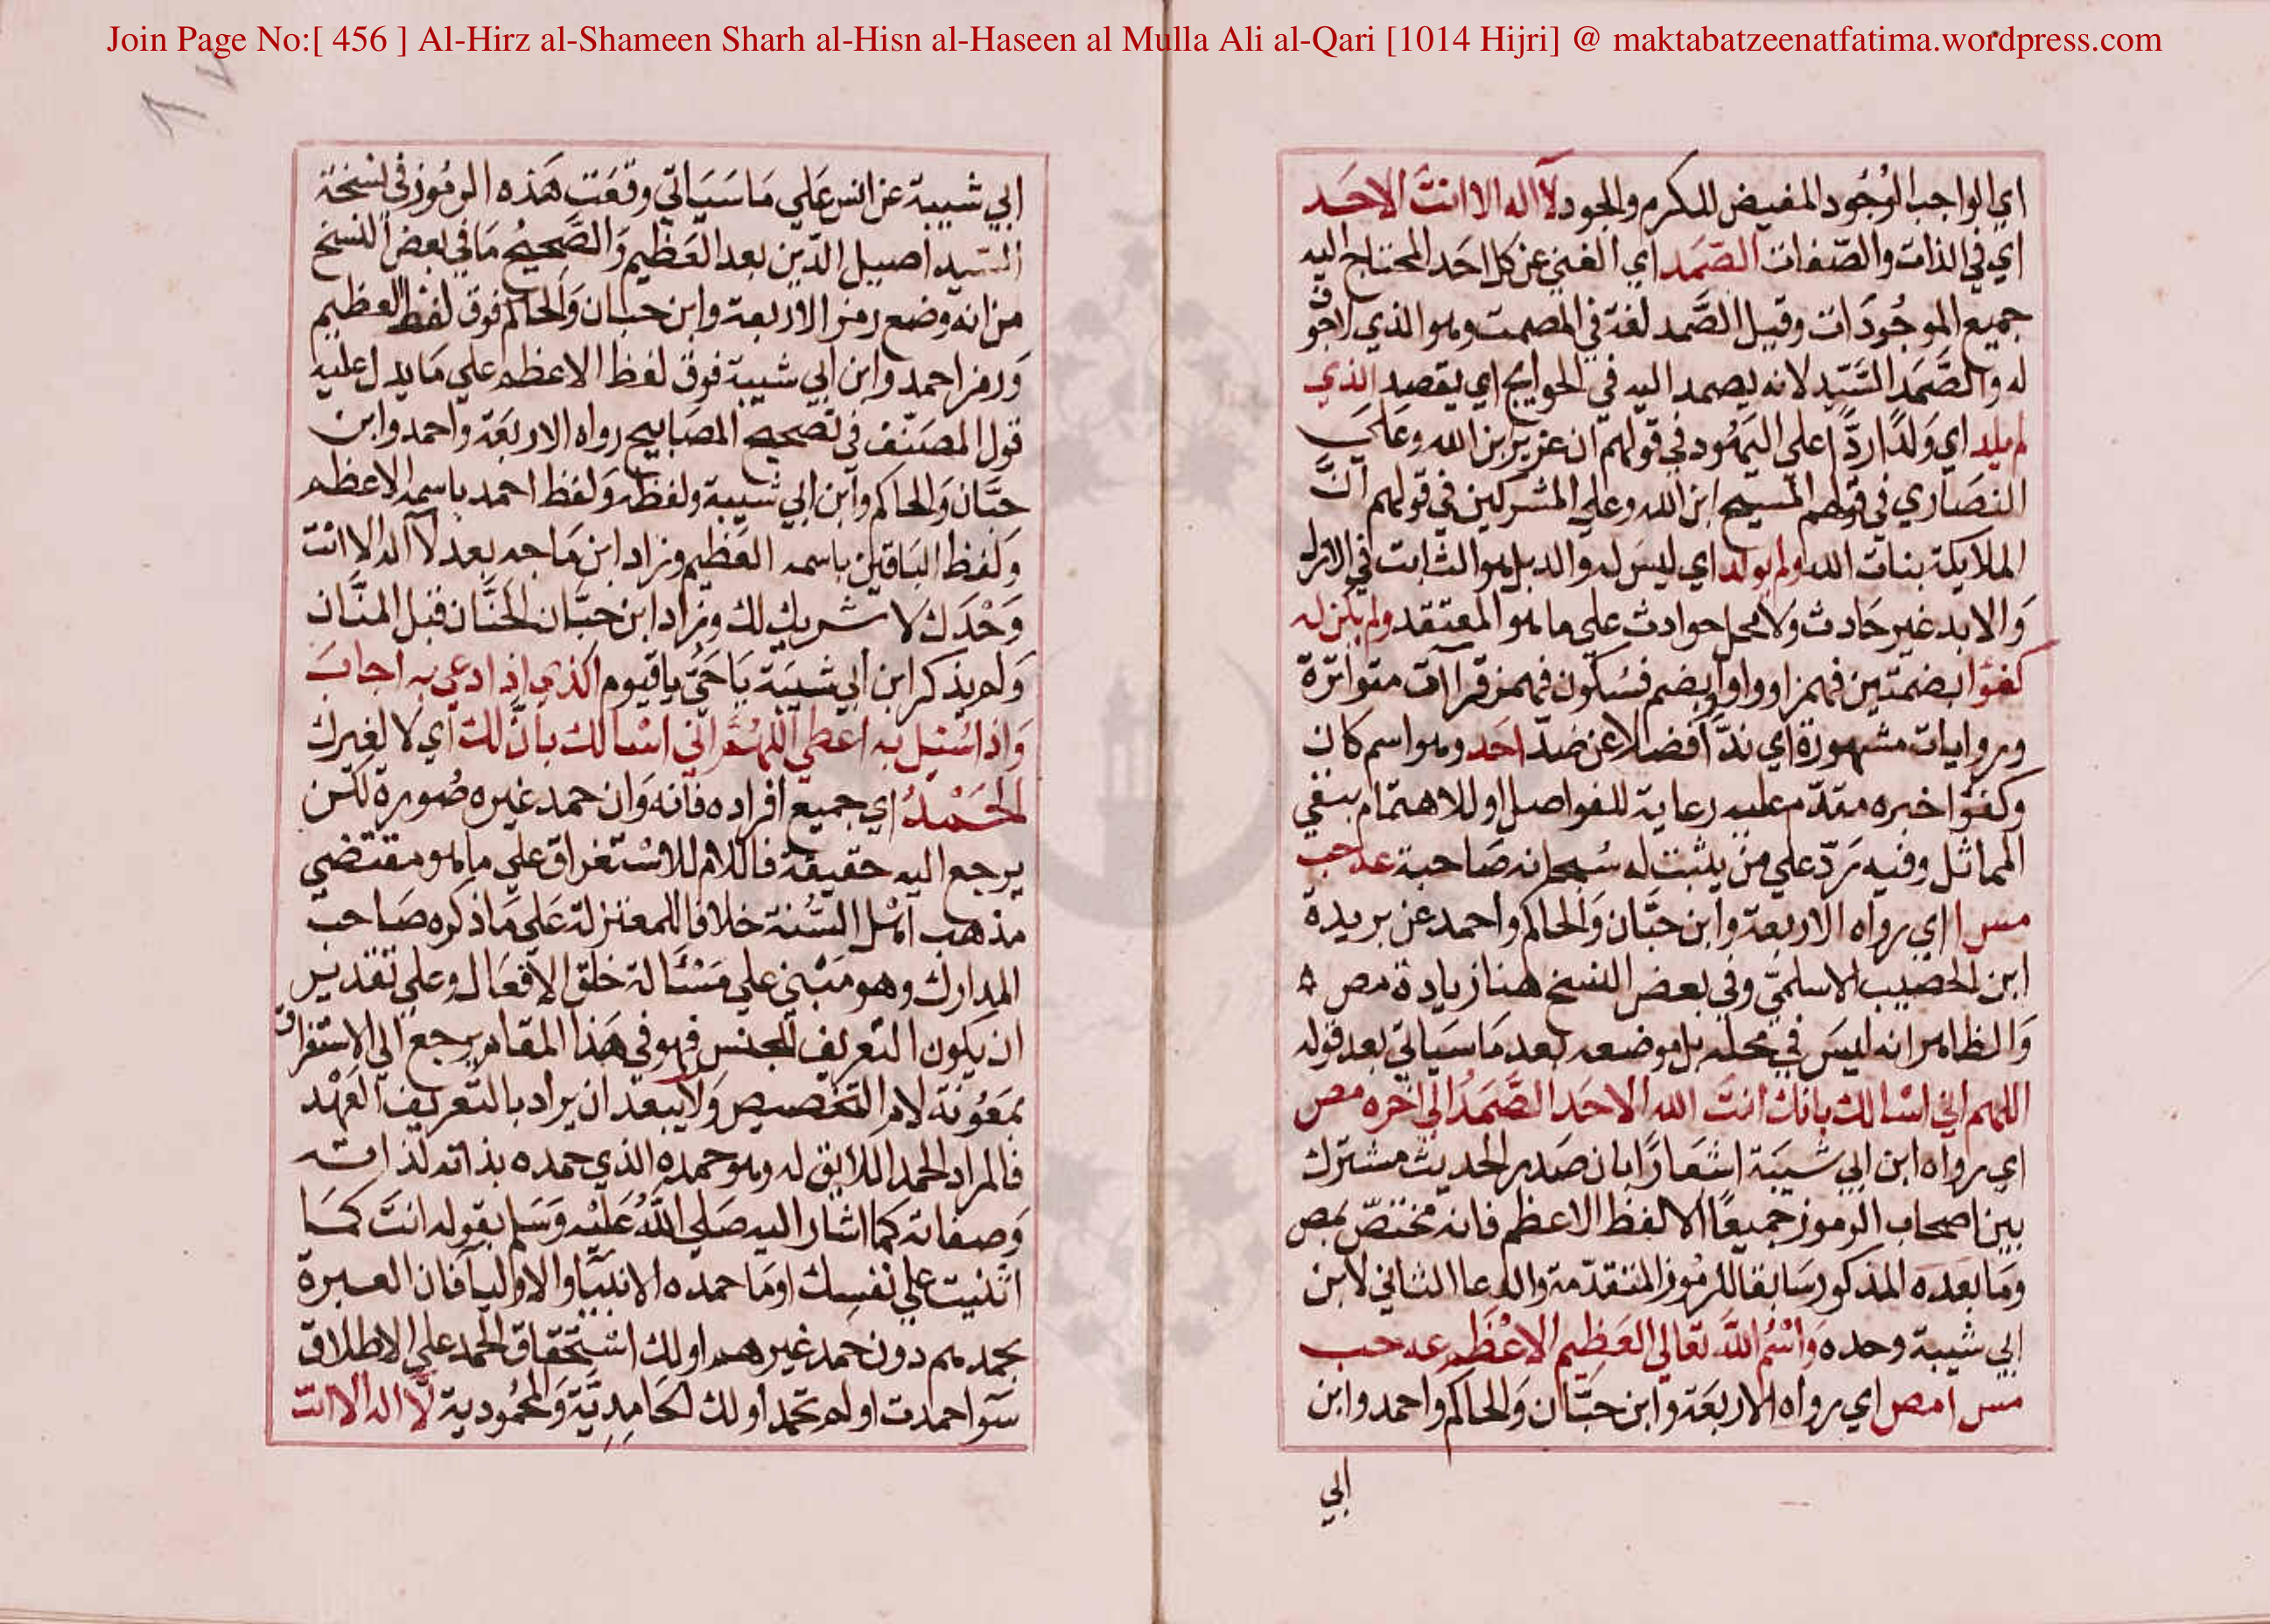 Join Page No:[ 456 ] Al-Hirz al-Shameen Sharh al-Hisn al-Haseen al Mulla Ali al-Qari [1014 Hijri] @ maktabatzeenatfatima.wordpress.com
اي الواجب الوُجُود المفيض للكرم والجود لآ اله الا انتَ الاحَد
اي في الذات والصّفات الصّمَد اي الغني عن كل احَد المحتاج اليه
جميع الموجُودَات وقيل الصَّمد لغة في المصمت وهو الذي لاجو
له والصَّمَد السَّيّد لانه يصمد اليه في الحوايج اي يقصد الذي
لم يلد اي وَلدًا ردًّا علي اليَهُود في قولهم ان عزير بن الله وعَلي
النصَاري في قولهم المسيح ابن الله وعلي المشركين في قولهم انَّ
الملايكة بنات الله ولم يولد اي ليسَ له والد بل هو الثابت في الازل
وَالابد غير حَادث ولا محل حوادث علي ما هو المعتقد ولم يكن له
كفؤا بضمتين فهمز او واو او بضم فسُكون فهمز قرآات متواترة
وروايات مشهورة اي ندًّا فضلا عن ضدّ احَد وهو اسم كان
وكفؤا خبره مقدّم عليه رعاية للفواصل او للاهتمام بنفي
المماثل وفيه رَدّ علي من يثبت له سُبحانه صَاحبة عه حب
مس ا اي رواه الاربعة وابن حبَّان وَالحاكم واحمد عن بريدة
ابن الحصيب الاسلميّ وفي بعض النسخ هنا زيادة مص
وَالظاهر انه ليسَ في محله بل موضعه بَعد مَا سَياتي بعد قوله
اللهم اني اسْالك بانك انتَ الله الاحَد الصَّمَدُ الي اخره مص
اي رواه ابن ابي شيبَة اشعَارًا بان صَدر الحديث مشترك
بين اصحاب الرموز جميعًا الا لفظ الاعظم فانه مختصّ بمص
وما بَعده المذكور سَابقا للرمُوز المتقدّمة والدعا الثاني لابن
ابي شيبة وحده وَاسْمُ اللهِ تعَالي العَظِيم الاعْظَم عه حب
مس ا مص اي رواه الاربعَة وابن حَبَّان وَالحاكم واحمد وابن
ابي
ابي شيبة عن انس عَلي مَا سَيَاتي وقعَت هَذه الرمُوز في نسخة
السّيد اصيل الدّين بعد العَظيم وَالصَّحيحُ مَا في بعض النسخ
من انه وضع رمز الاربعة وابن حبان وَالحاكم فوق لفظ العظيم
وَرمز احمد وابن ابي شيبة فوق لفظ الاعظم علي مَا يدل عليه
قول المصَنّف في تصحيح المصَابيح رواه الاربعَة واحمد وابن
حبَّان وَالحاكم وابن ابي شيبة ولفظه وَلفظ احمد باسمه الاعظم
وَلفظ البَاقين باسمه العَظيم وزاد ابن مَاجه بعد لآ اله الا انْت
وَحْدَك لا شريك لك وزاد ابن حبَّان الحنَّان قبل المنَّان
وَلم يذكر ابن ابي شيبَة يَا حَيُّ يا قيوم الذي اذا دعي به اجابَ
وَاذا سُئِل به اعطي اللهُمَّ اني اسْالك بانَّ لك اي لا لغيرك
الحَمْدُ اي جميع افراده فانه وَان حمد غيره صُورة لكن
يرجع اليه حقيقة فاللام للاسْتغراق علي ما هو مقتضي
مذهب اهْل السُّنة خلافا للمعتزلة عَلي مَا ذكره صَاحب
المدارك وهو مَبْني علي مَسْئَالة خلق الافعَال وعلي تقدير
ان يكون التعريف للجنس فهو في هَذا المقام يرجع الي الاستغراق
بمَعُونَة لام التخصيص وَلا يبعد ان يراد بالتعريف العَهْد
فالمراد الحمد اللايق له وهو حمده الذي حمده بذاته لذاته
وَصفاته كما اشار اليه صَلي اللهُ عَليْه وَسَلم بقوله انتَ كمَا
اثنيت علي نفسِك او مَا حمده الانبيَا والاوليا فان العبرة
بحمدهم دون حَمد غيرهم او لك اسْتحقاق الحمد علي الاطلاق
سَوا حمدت او لم تحمد او لك الحَامِدِيَّة وَالمحمُودية لآ اله الا انت